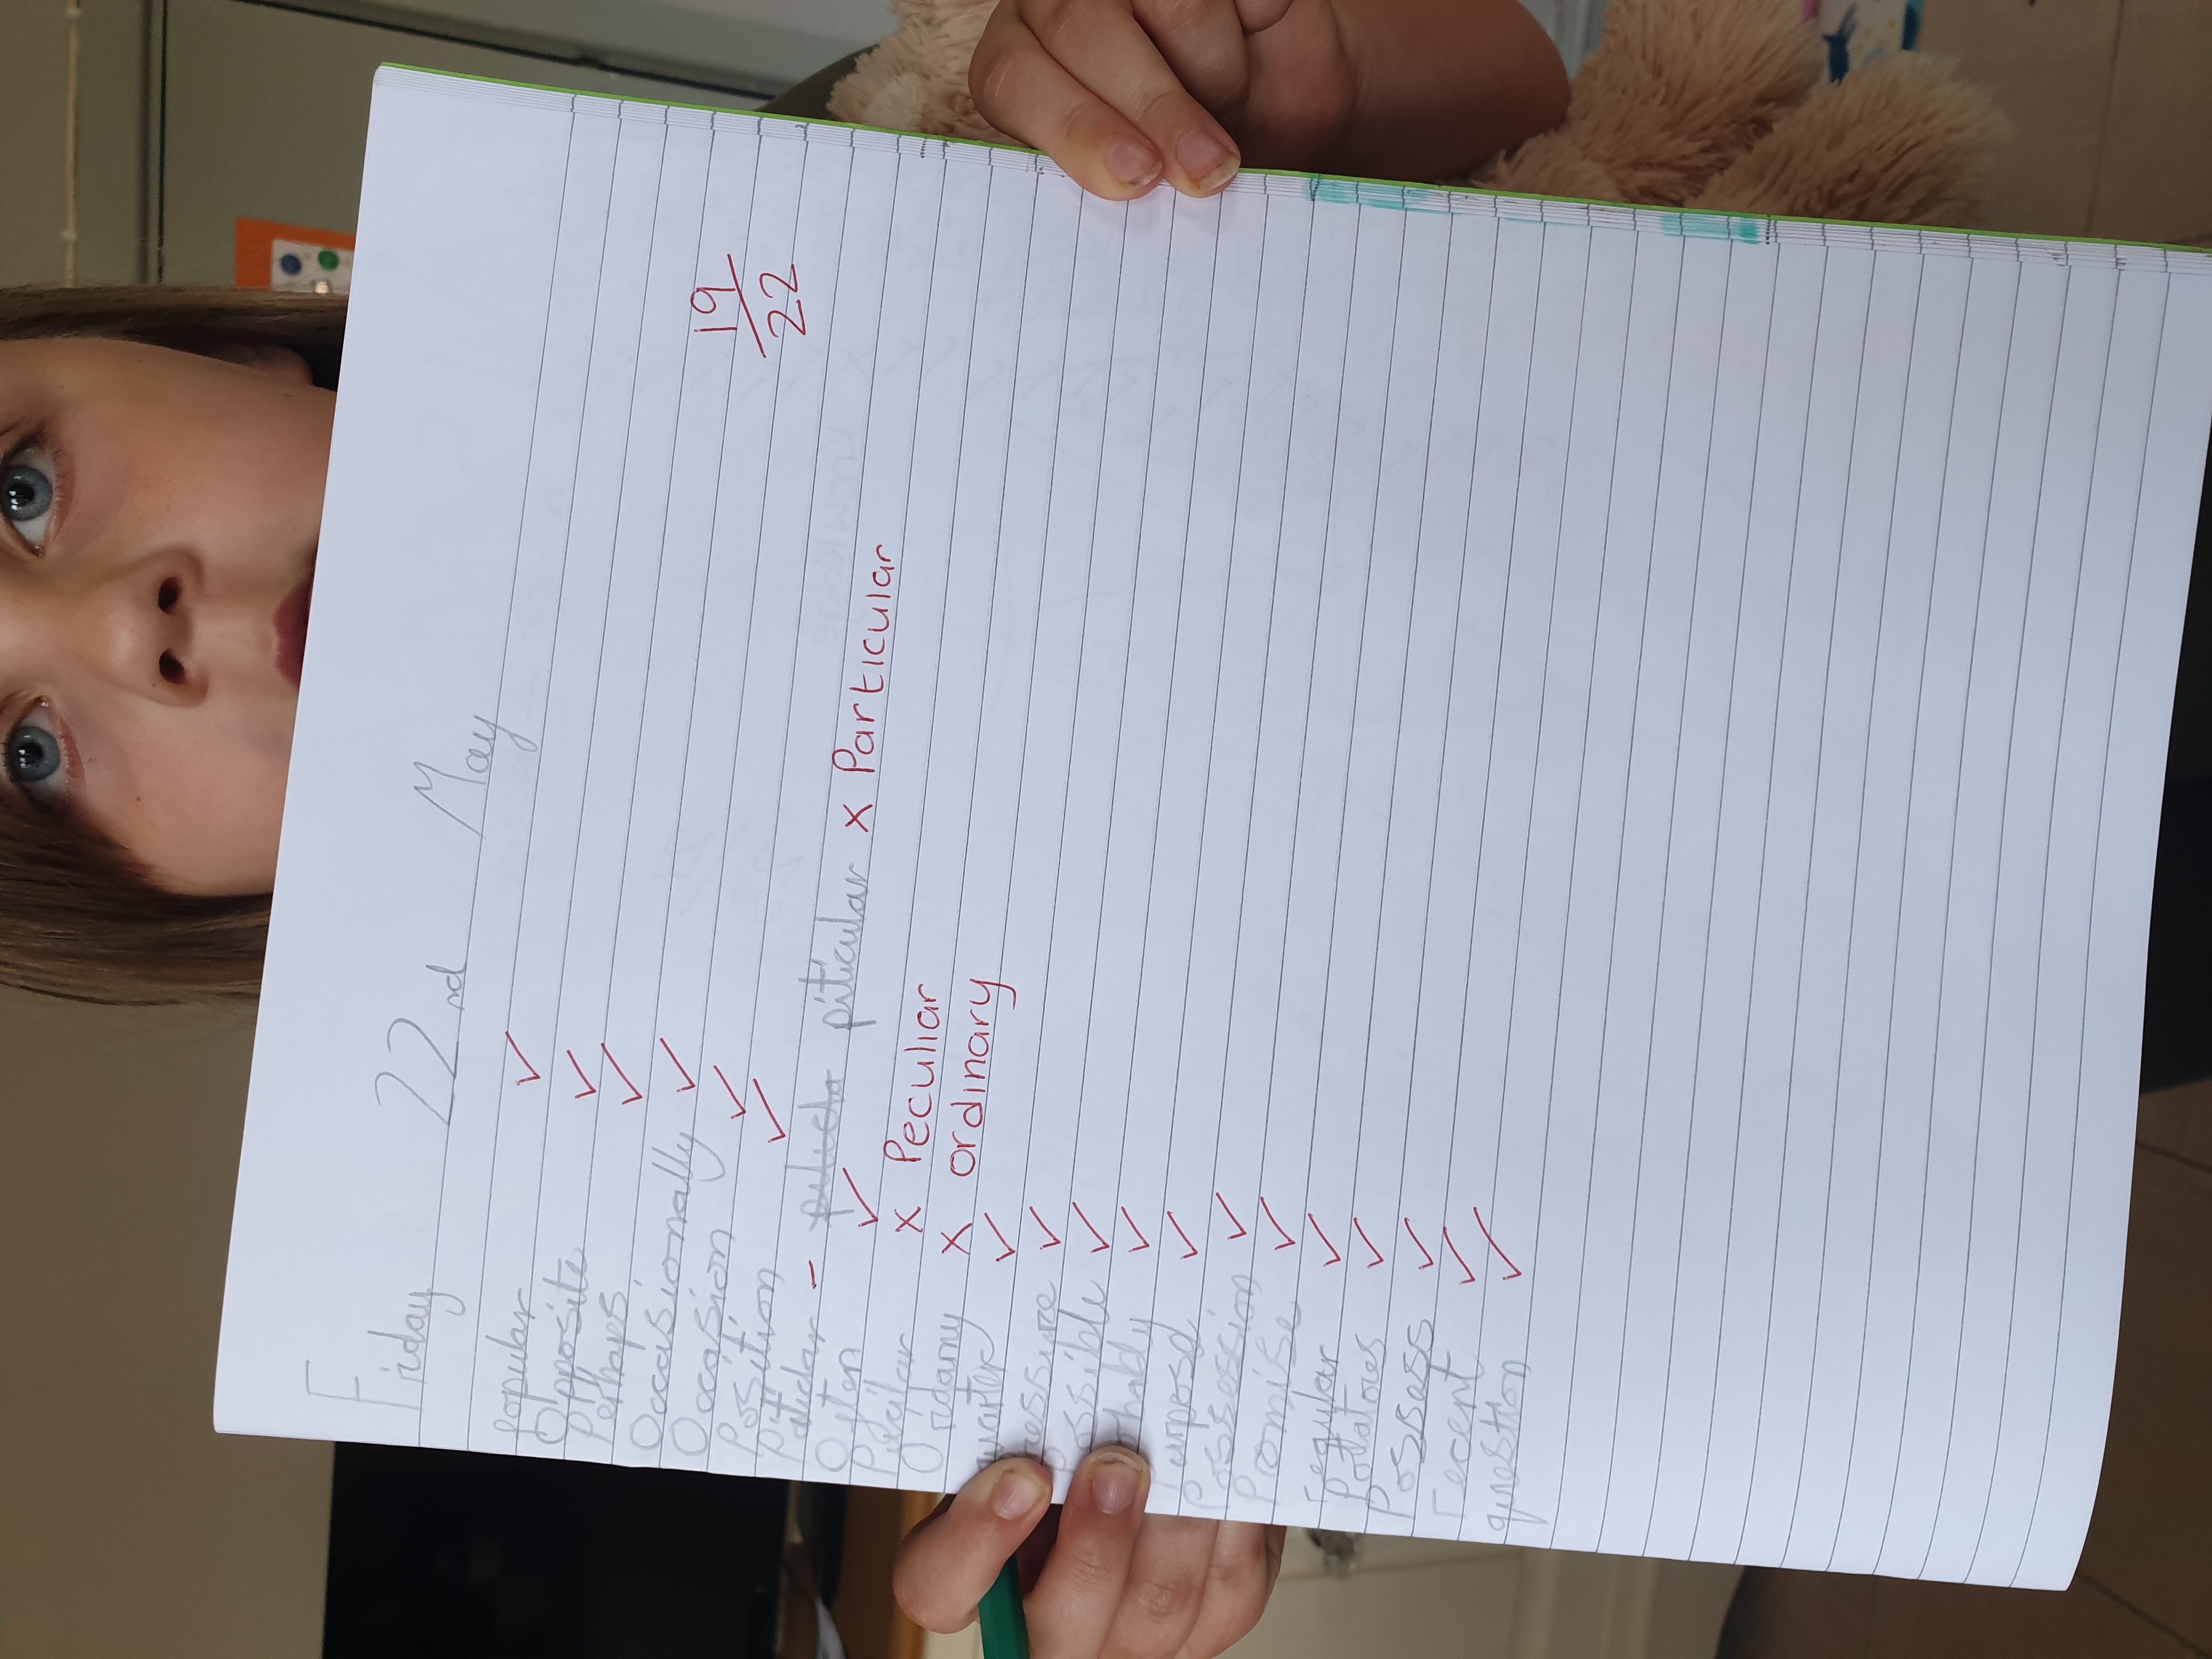 Friday 22nd May
Popular ✓
Opposite ✓
Perhaps ✓
Occasionally ✓
Occasion ✓
Position ✓
19/22
piticular - piticular x Particular
Often ✓
x Peculiar
Oridany x ordinary
✓
pressure ✓
possible ✓
✓
purpose ✓
Possession ✓
Promise ✓
regular ✓
Potatoes ✓
Possess ✓
recent ✓
question ✓